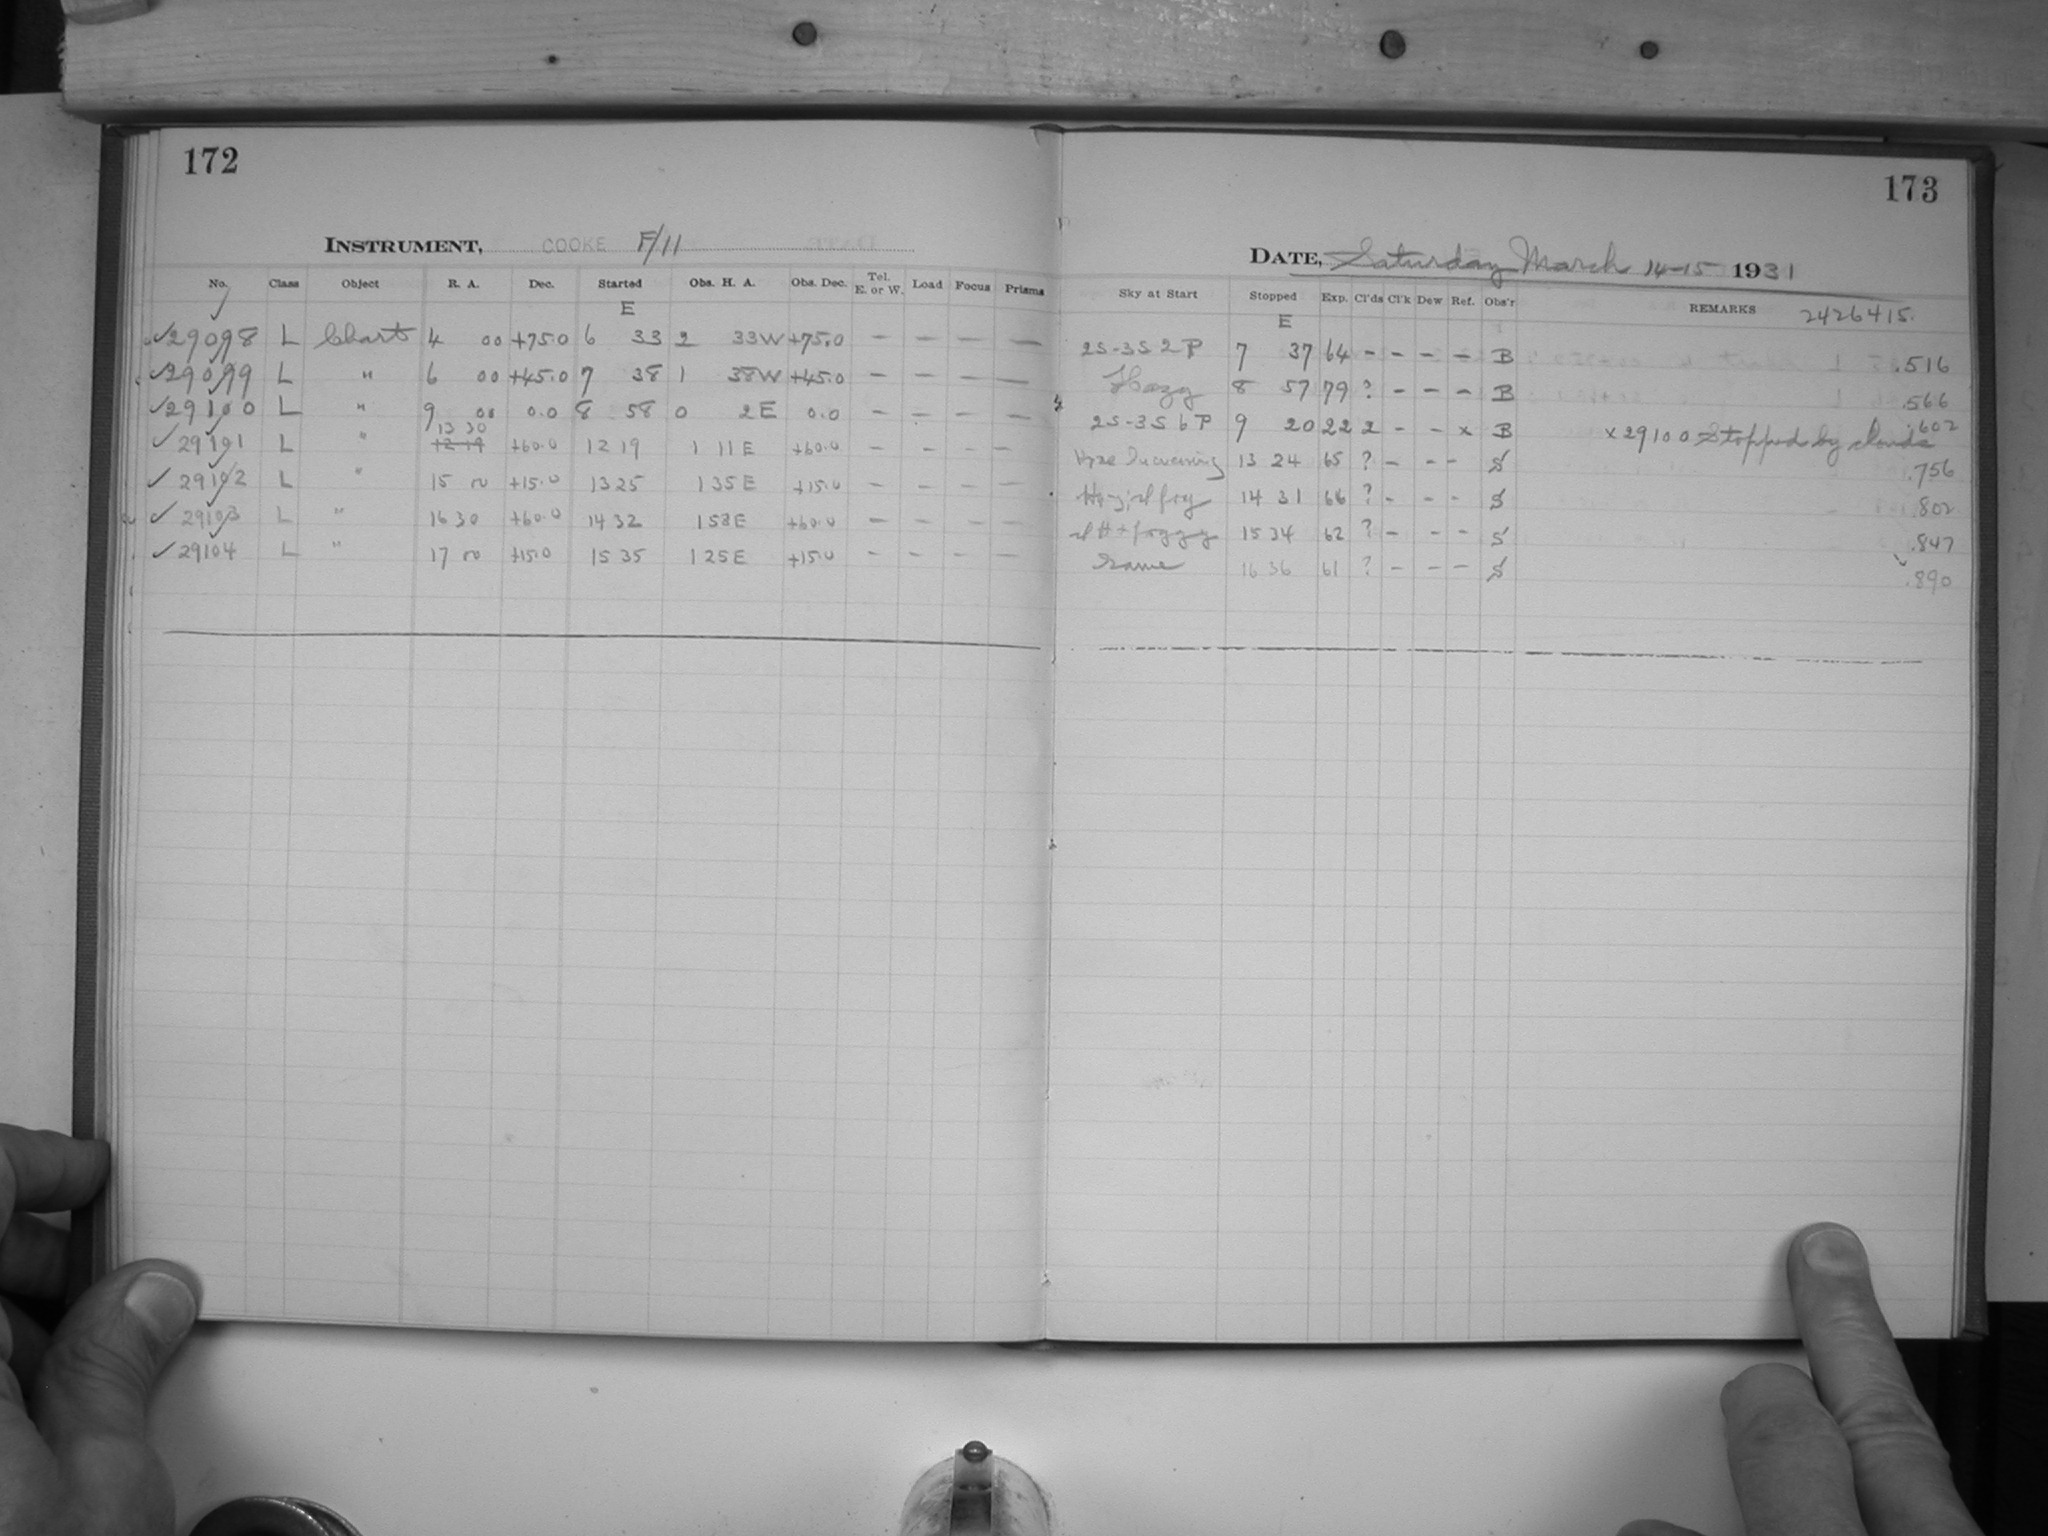 172
INSTRUMENT, COOKE F/11
No. Class Object R. A. Dec. Started Obs. H. A. Obs. Dec. Tel. E. or W. Load Focus Prisms
E
✓29098 L Chart 4 00 +75.0 6 33 2 33W +75.0 — — — —
✓29099 L " 6 00 +45.0 7 38 1 38W +45.0 — — — —
✓29100 L " 9 00 0.0 8 58 0 2E 0.0 — — — —
13 30
✓29101 L " 12 19 +60.0 12 19 1 11E +60.0 — — — —
✓29102 L " 15 00 +15.0 13 25 1 35E +15.0 — — — —
✓29103 L " 16 30 +60.0 14 32 1 58E +60.0 — — — —
✓29104 L " 17 00 +15.0 15 35 1 25E +15.0 — — — —
173
DATE, Saturday March 14-15 1931
Sky at Start Stopped Exp. Cl'ds Cl'k Dew Ref. Obs'r REMARKS 2426415.
E
2S-3S 2P 7 37 64 - - - - B .516
Hazy 8 57 79 ? - - - B .566
2S-3S 6P 9 20 22 2 - - x B x29100 Stopped by clouds .602
Haze Increasing 13 24 65 ? - - - S .756
14 31 66 ? - - - S .802
foggy 15 34 62 ? - - - S .847
Same 16 36 61 ? - - - S .890